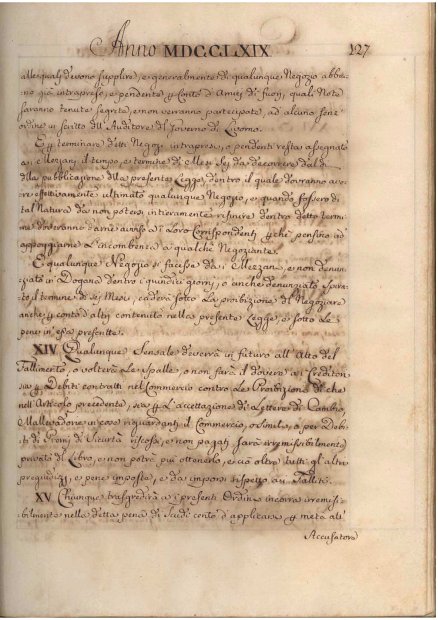 Anno MDCCLXIX 127
alle quali devono supplire, e generalmente di qualunque Negozio abbia-
no già intrapreso, e pendente p Conto d'Amici di fuori, quali Note
saranno tenute segrete, e non verranno partecipate, ad alcuno senz'
ordine in scritto dell'Auditore del Governo di Livorno.
E p terminare detti Negozi intrapresi, o pendenti resta assegnato
ai Mezzani, il tempo, e termine di Mesi Sei da decorrere dal dì
della pubblicazione della presente Legge, dentro il quale dovranno aver
effettivamente ultimato qualunque Negozio, e quando fossero di
tal Natura da non potersi intieramente rifinire dentro detto termi-
ne doveranno darne avviso ai Loro Corrispondenti p che pensino ad
appoggiarne L'incombenza a qualche Negoziante.
E qualunque Negozio si facesse da i Mezzani, e non denun-
ziato in Dogana dentro i quindici giorni, o anche denunziato spira-
to il termine di sei Mesi, caderà sotto La proibizione di Negoziare
anche p conto d'altri contenuto nella presente Legge, e sotto Le
pene in essa prescritte.
XIV. Qualunque Sensale devenirà in futuro all'Atto del
Fallimento, o volterà Le Spalle, o non farà il dovere a i Creditori
sia p Debiti contratti nel Commercio contro Le Proibizioni di che
nell'Articolo precedente, sia p L'accettazione di Lettere di Cambio,
Mallevadorie in cose riguardanti il Commercio, o simile, o per Debi-
ti di Premj di Sicurtà riscossi, e non pagati sarà irremissibilmente
privato del Libro, e non potrà più ottenerlo, e ciò oltre tutti gl'altri
pregiudizj, e pene imposte, e da imporsi rispetto ai Falliti.
XV. Chiunque trasgredirà a i presenti Ordini incorra irremissi-
bilmente nella detta pena di Scudi cento d'applicarsi p metà all'
Accusatore